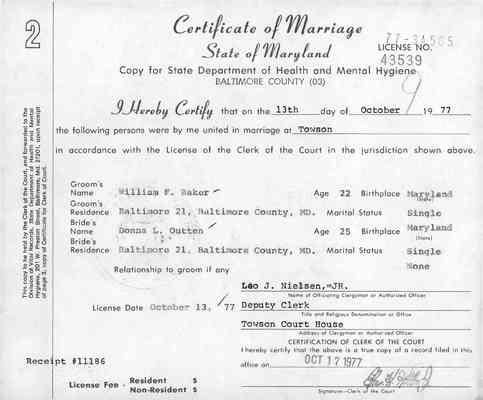 2
Certificate of Marriage
State of Maryland
77-34505
LICENSE NO.
43539
Copy for State Department of Health and Mental Hygiene
BALTIMORE COUNTY (03)
9
I Hereby Certify that on the 13th day of October 19 77
the following persons were by me united in marriage at Towson
in accordance with the License of the Clerk of the Court in the jurisdiction shown above.
This copy to be held by the Clerk of the Court, and forwarded to the
Division of Vital Records, State Department of Health and Mental
Hygiene, 201 W. Preston Street, Baltimore, Md. 21201, upon receipt
of page 3, copy of Certificate for Clerk of Court.
Groom's
Name William F. Baker Age 22 Birthplace Maryland
(State)
Groom's
Residence Baltimore 21, Baltimore County, MD. Marital Status Single
Bride's
Name Donna L. Outten Age 25 Birthplace Maryland
(State)
Bride's
Residence Baltimore 21, Baltimore County, MD. Marital Status Single
Relationship to groom if any None
Leo J. Nielsen, JR.
Name of Officiating Clergyman or Authorized Officer
License Date October 13, '77 Deputy Clerk
Title and Religious Denomination or Office
Towson Court House
Address of Clergyman or Authorized Officer
CERTIFICATION OF CLERK OF THE COURT
I hereby certify that the above is a true copy of a record filed in this
office on OCT 17 1977
Receipt #11186
License Fee - Resident $
Non-Resident $
Signature-Clerk of the Court